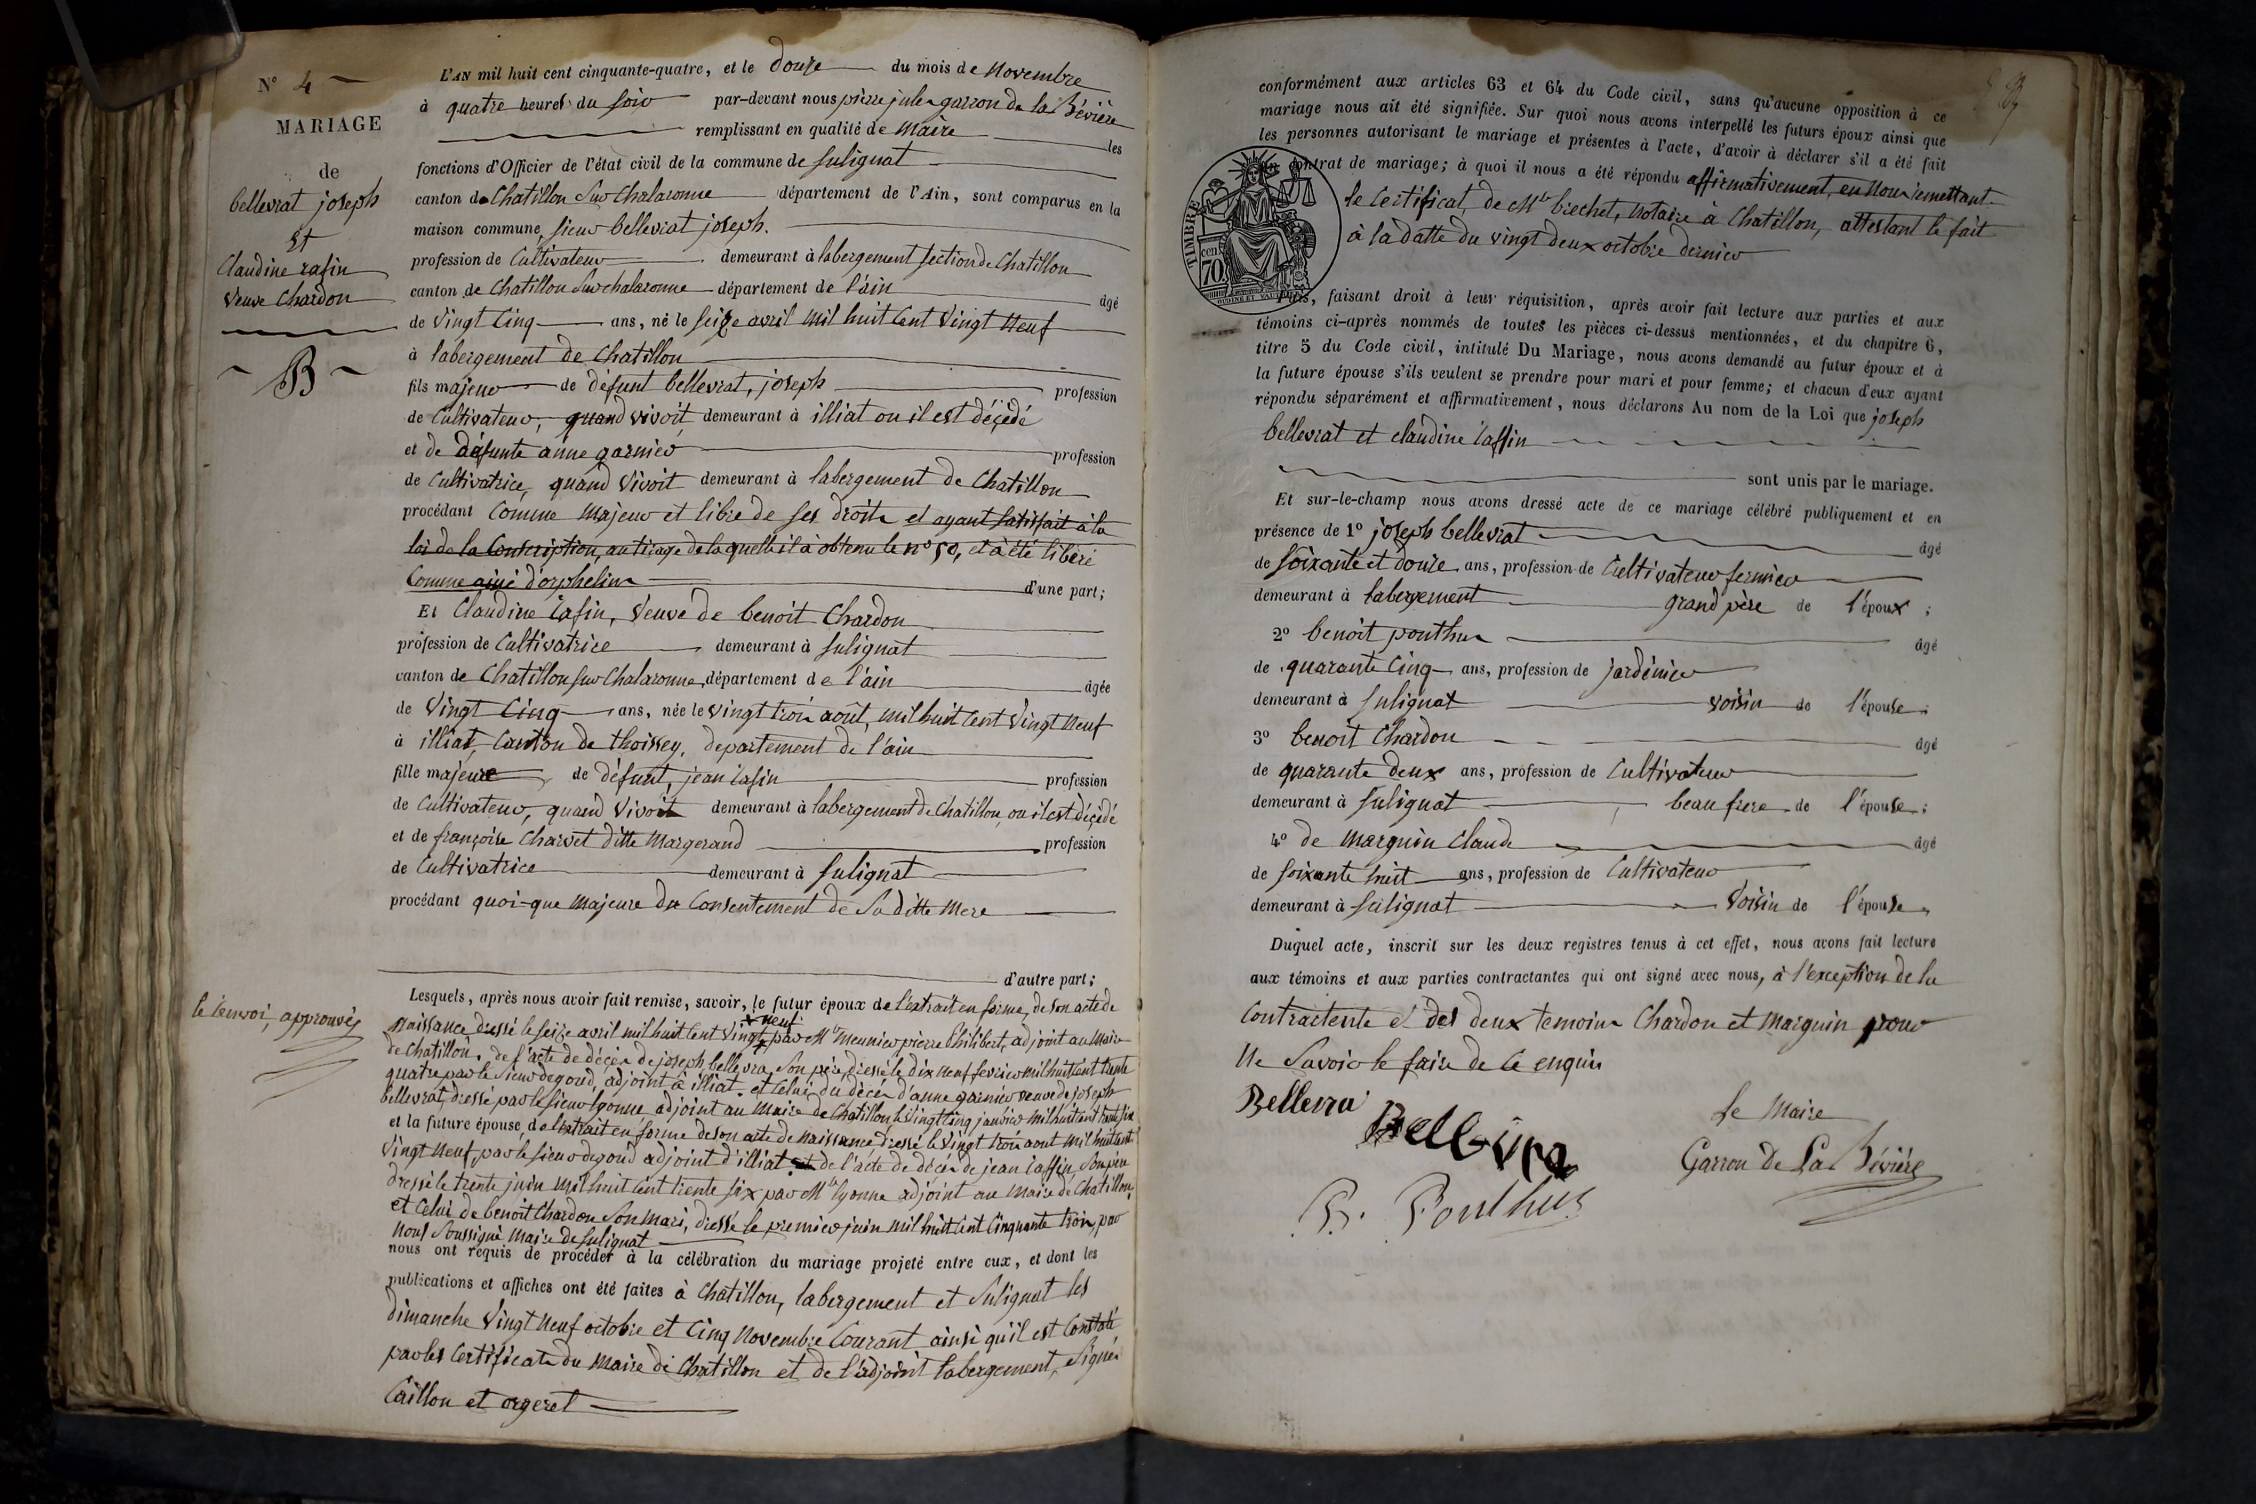 N° 4
MARIAGE
de
bellevrat joseph
et
Claudine rafin
Veuve Chardon
B
L'AN mil huit cent cinquante-quatre, et le douze du mois de Novembre
à quatre heures du soir par-devant nous pierre jules garron de la Bévière
remplissant en qualité de Maire les
fonctions d'Officier de l'état civil de la commune de Sulignat
canton de Chatillon Sur Chalaronne département de l'Ain, sont comparus en la
maison commune, Sieur bellevrat joseph.
profession de Cultivateur demeurant à labergement Section de Chatillon
canton de Chatillon Sur chalaronne département de l'ain âgé
de Vingt Cinq ans, né le Seize avril Mil huit Cent Vingt Neuf
à labergement de Chatillon
fils majeur de défunt bellevrat, joseph profession
de Cultivateur, quand vivoit demeurant à illiat ou il est décédé
et de défunte anne garnier profession
de Cultivatrice, quand Vivoit demeurant à labergement de Chatillon
procédant Comme Majeur et libre de Ses droits et ayant Satisfait à la
loi de la Conscription, au tirage de laquelle il à obtenu le n° 50, et à été libéré
Comme ainé d'orphelins d'une part;
Et Claudine rafin, Veuve de benoit Chardon
profession de Cultivatrice demeurant à Sulignat
canton de Chatillon Sur Chalaronne, département de l'ain âgée
de Vingt Cinq ans, née le Vingt trois août, Mil huit Cent Vingt Neuf
à illiat, Canton de thoissey, departement de l'ain
fille majeure de défunt, jean rafin profession
de Cultivateur, quand Vivoit demeurant à labergement de Chatillon, ou il est décédé
et de françoise Charvet ditte Margerand profession
de Cultivatrice demeurant à Sulignat
procédant quoi-que Majeure du Consentement de Sa ditte Mere
d'autre part;
Lesquels, après nous avoir fait remise, savoir, le futur époux de l'extrait en forme, de son acte de
le renvoi, approuvé
+ neuf
Naissance dressé le Seize avril mil huit Cent Vingt + par Mr Meunier pierre Philibert, adjoint au Maire
de Chatillon. de l'acte de décès de joseph bellevra Son père, dressé le dix neuf fevrier mil huit Cent trente
quatre par le Sieur degoud, adjoint à illiat. et Celui du décès d'anne garnier veuve de joseph
bellevrat, dressé par le Sieur lyonne adjoint au Maire de Chatillon le Vingt Cinq janvier mil huit Cent trente Six
et la future épouse, de l'extrait en forme de son acte de Naissance dressé le Vingt trois aout Mil huit Cent
Vingt Neuf, par le Sieur degoud adjoint d'illiat de l'acte de décès de jean raffin, Son père
dressé le trente juin Mil huit Cent trente Six par Mr lyonne adjoint au Maire de Chatillon
et Celui de benoit Chardon Son Mari, dressé le premier juin Mil huit Cent Cinquante trois, par
Nous Soussigné Maire de Sulignat
nous ont requis de procéder à la célébration du mariage projeté entre eux, et dont les
publications et affiches ont été faites à Chatillon, labergement et Sulignat les
dimanche Vingt Neuf octobre et Cinq Novembre Courant ainsi qu'il est Constaté
par les Certificats du Maire de Chatillon et de l'adjoint labergement, Signés
Caillon et orgeret
conformément aux articles 63 et 64 du Code civil, sans qu'aucune opposition à ce
mariage nous ait été signifiée. Sur quoi nous avons interpellé les futurs époux ainsi que
les personnes autorisant le mariage et présentes à l'acte, d'avoir à déclarer s'il a été fait
un contrat de mariage; à quoi il nous a été répondu affirmativement, en Nous remettant
le Certificat, de Mr brechet, Notaire à Chatillon, attestant le fait
à la datte du vingt deux octobre dernier
TIMBRE
70 cen
OUDINE ET
Puis, faisant droit à leur réquisition, après avoir fait lecture aux parties et aux
témoins ci-après nommés de toutes les pièces ci-dessus mentionnées, et du chapitre 6,
titre 5 du Code civil, intitulé Du Mariage, nous avons demandé au futur époux et à
la future épouse s'ils veulent se prendre pour mari et pour femme; et chacun d'eux ayant
répondu séparément et affirmativement, nous déclarons Au nom de la Loi que joseph
bellevrat et claudine raffin
sont unis par le mariage.
Et sur-le-champ nous avons dressé acte de ce mariage célébré publiquement et en
présence de 1° joseph bellevrat âgé
de Soixante et douze ans, profession de Cultivateur fermier
demeurant à labergement grand père de l'époux;
2° benoit ponthus âgé
de quarante Cinq ans, profession de jardinier
demeurant à Sulignat Voisin de l'épouse;
3° benoit Chardon âgé
de quarante deux ans, profession de Cultivateur
demeurant à Sulignat beau frere de l'épouse;
4° de Marguin Claude âgé
de Soixante huit ans, profession de Cultivateur
demeurant à Sulignat Voisin de l'épouse,
Duquel acte, inscrit sur les deux registres tenus à cet effet, nous avons fait lecture
aux témoins et aux parties contractantes qui ont signé avec nous, à l'exception de la
Contractente et des deux temoins Chardon et Marguin pour
Ne Savoir le faire de Ce enquis
Bellevra
Bellevra
Le Maire
Garron de La Bévière
B. Ponthus